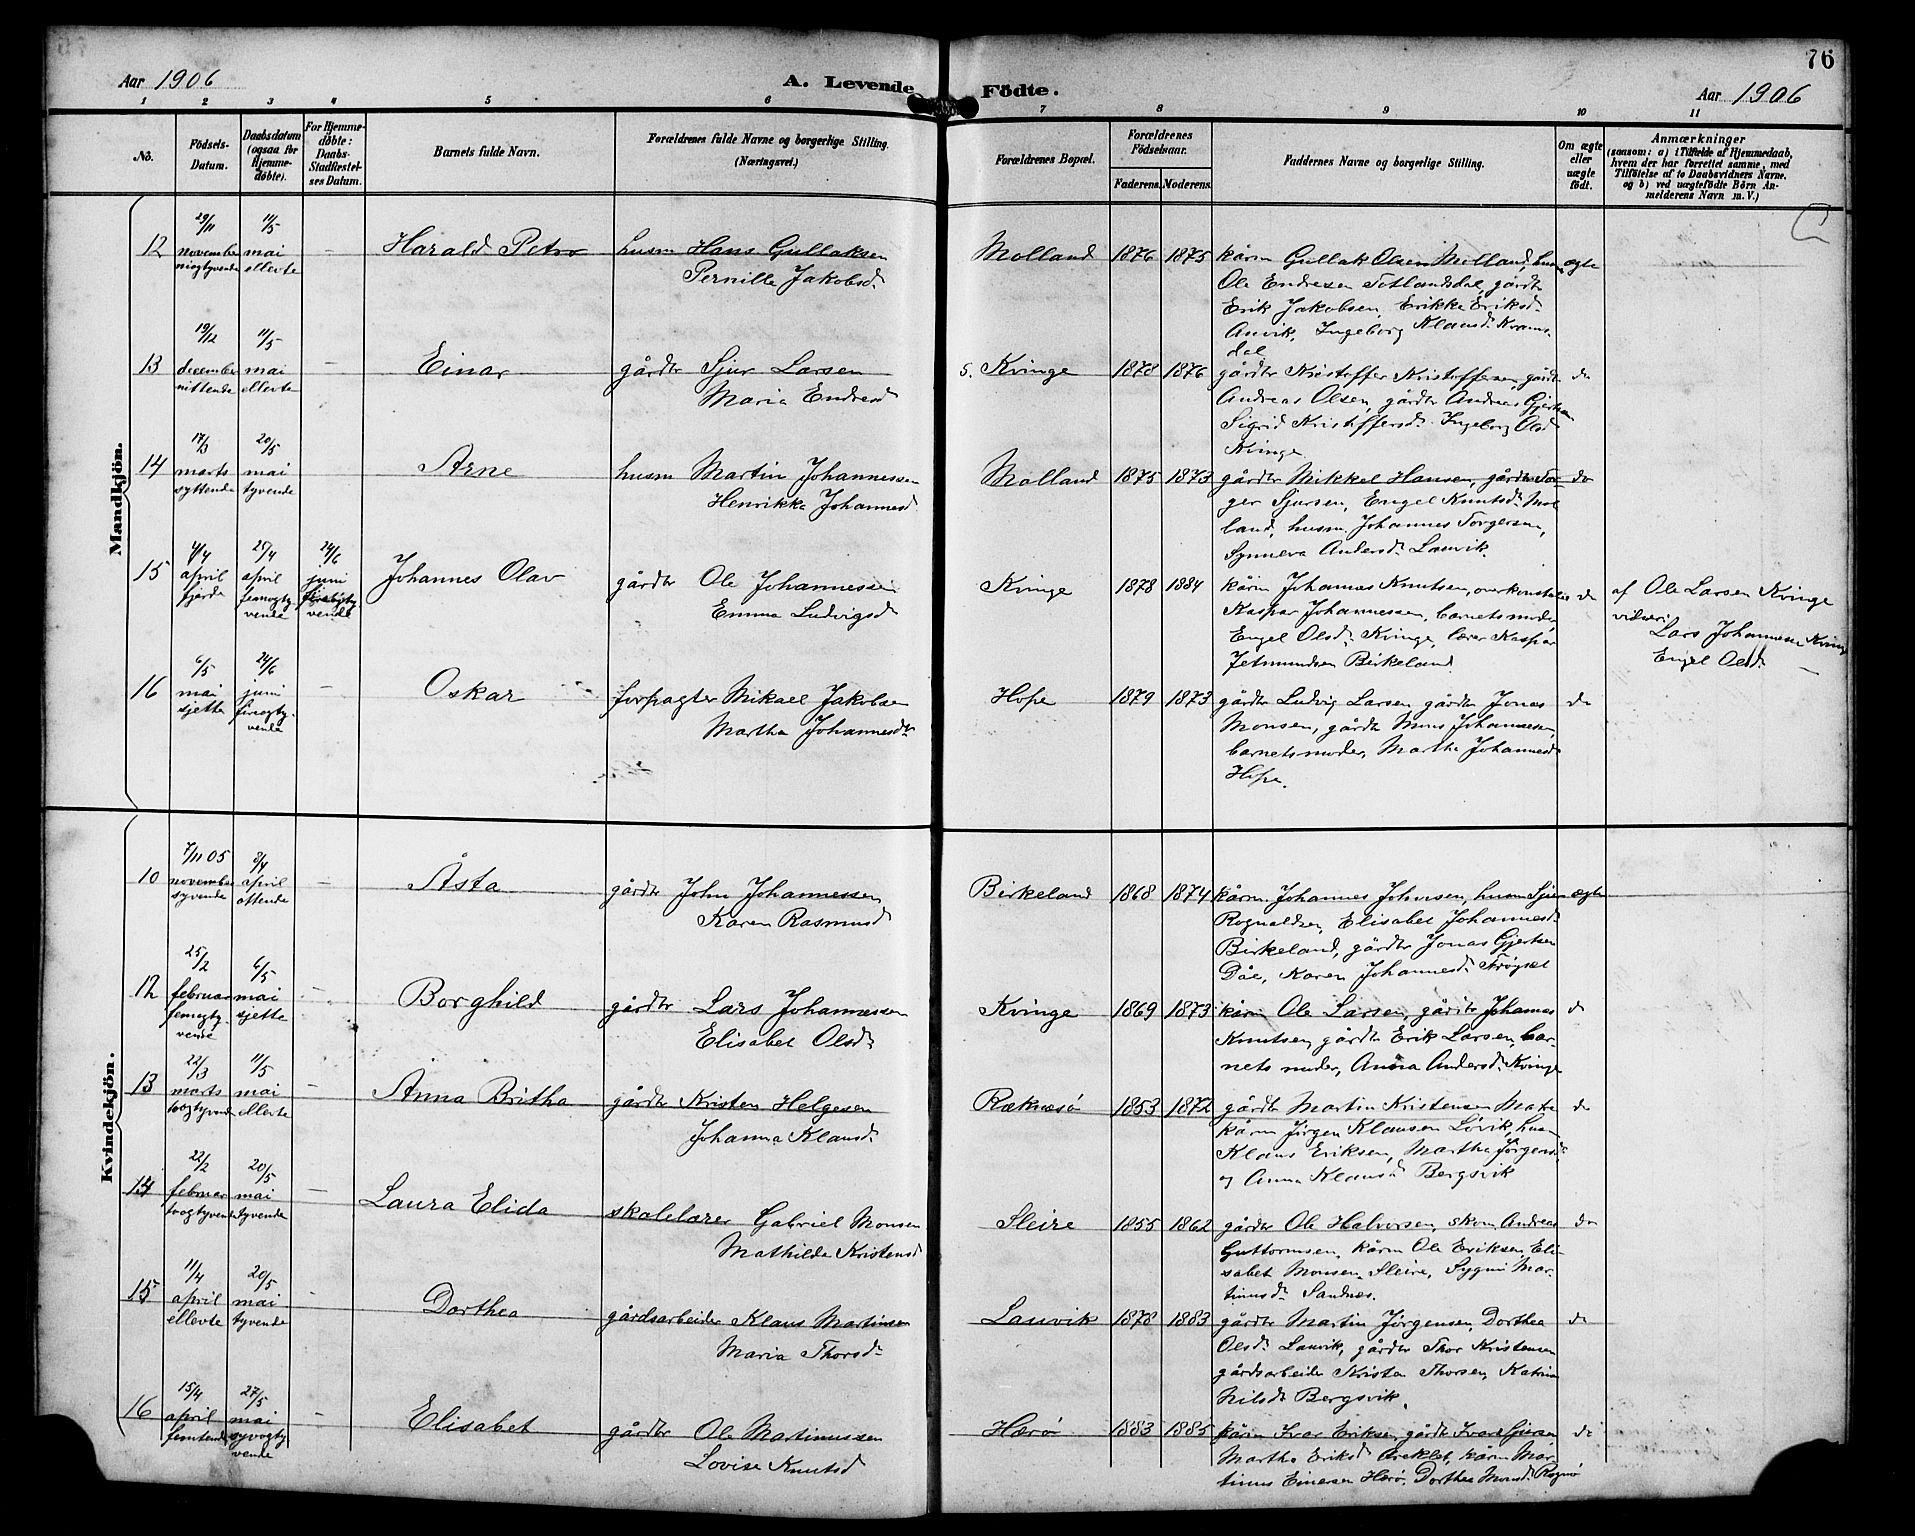 76
Aar 1906
A. Levende Födte.
Aar 1906
1 2 3 4 5 6 7 8 9 10 11
No.
Födsels-Datum.
Daabsdatum (ogsaa for Hjemme-döbte).
For Hjemme-döbte: Daabs-Stadfæstel-ses Datum.
Barnets fulde Navn.
Forældrenes fulde Navne og borgerlige Stilling. (Næringsvei.)
Forældrenes Bopæl.
Forældrenes Födselsaar.
Faderens. Moderens.
Faddernes Navne og borgerlige Stilling.
Om ægte eller uægte födt.
Anmærkninger
(saasom: a) i Tilfælde af Hjemmedaab, hvem der har forrettet samme, med Tilföielse af to Daabsvidners Navne, og b) ved uægtefödte Börn An-melderens Navn m. V.)
Mandkjön.
12 29/11 november niogtyvende 11/5 mai ellevte - Harald Petro husm Hans Gullaksen Pernille Jakobsd. Molland 1876 1875 kårm Gullak Olsen Molland, husm Ole Endresen Totlandsdal, gårdbr Erik Jakobsen, Erikka Eriksd. Anvik, Ingeborg Klausd. Kramsdal ægte
13 19/12 december nittende 11/5 mai ellevte - Einar gårdbr Sjur Larsen Maria Endresd S. Kvinge 1878 1876 gårdbr Kristoffer Kristoffersen, gårdbr Andreas Olsen, gårdbr Andreas Gjertsen Sigrid Kristoffersd. Ingeborg Olsd Kvinge do
14 17/3 marts syttende 20/5 mai tyvende Arne husm Martin Johannessen Henrikka Johannesd Molland 1875 1873 gårdbr Mikkel Hansen, gårdbr Torger Sjursen, Engel Knutsd. Molland, husm. Johannes Torgersen, Synneva Andersd. Lauvik. do
15 4/4 april fjerde 25/4 april femogtyvende 24/6 juni fireogtyvende Johannes Olav gårdbr Ole Johannessen Emma Ludvigsd Kvinge 1878 1884 kårm Johannes Knutsen, overkonstabel Kaspar Johannessen, barnets moder, Engel Olsd. Kvinge, lærer Kaspar Jetmundsen Birkeland do af Ole Larsen Kvinge vidner: Lars Johannesen Kvinge Engel Olsd.
16 6/5 mai sjette 24/6 juni fireogtyvende - Oskar forpagter Mikael Jakobsen Martha Johannesdr Hope 1879 1873 gårdbr Ludvig Larsen gårdbr Jonas Monsen, gårdbr Mons Johannesen, barnets moder, Martha Johannesd Hope. do
Kvindekjön.
10 7/11 05 november syvende 8/4 april ottende - Åsta gårdbr John Johannessen Karen Rasmusd Birkeland 1868 1874 kårm. Johannes Johnsen, husm Sjur Rognaldsen, Elisabet Johannesd. Birkeland, gårdbr Jonas Gjertsen Dåe, Karen Johannesd. Frøyset ægte
12 25/2 februar femogtyvende 6/5 mai sjette - Borghild gårdbr Lars Johannessen Elisabet Olsd. Kvinge 1869 1873 kårm Ole Larsen, gårdbr Johannes Knutsen, gårdbr Erik Larsen, barnets moder, Anna Andersd. Kvinge do
13 22/3 marts toogtyvende 11/5 mai ellevte - Anna Britha gårdbr Kristen Helgesen Johanna Klausd. Ræknesø 1853 1872 gårdbr Martin Kristensen kårm Jörgen Klausen Lövik, husm Klaus Eriksen, Martha Jörgensd og Anna Klausd Bergsvik do
14 22/2 februar toogtyvende 20/5 mai tyvende - Laura Elida skolelærer Gabriel Monsen Mathilde Kristensd Sleire 1855 1862 gårdbr Ole Halvorsen, skom. Andreas Guttormsen, kårm Ole Eriksen, Elisabet Monsen Sleire, Martinusd. Sandnes. do
15 11/4 april ellevte 20/5 mai tyvende - Dorthea gårdsarbeider Klaus Martinsen Maria Thorsd. Lauvik 1878 1883 gårdbr Martin Jörgensen, Dorthea Olsd. Lauvik, gårdbr Thor Kristensen gårdsarbeider Kristen Thorsen, Katrina Nilsd Bergsvik. do
16 15/4 april femtende 27/5 mai syvogtyvende - Elisabet gårdbr Ole Martinussen Lovise Knutsd Hærø 1883 1885 kårm Ivar Eriksen, gårdbr Ivar Sjursen Martha Eriksd kårm Martinus Einersen Hærø, Dorthea Monsd. do